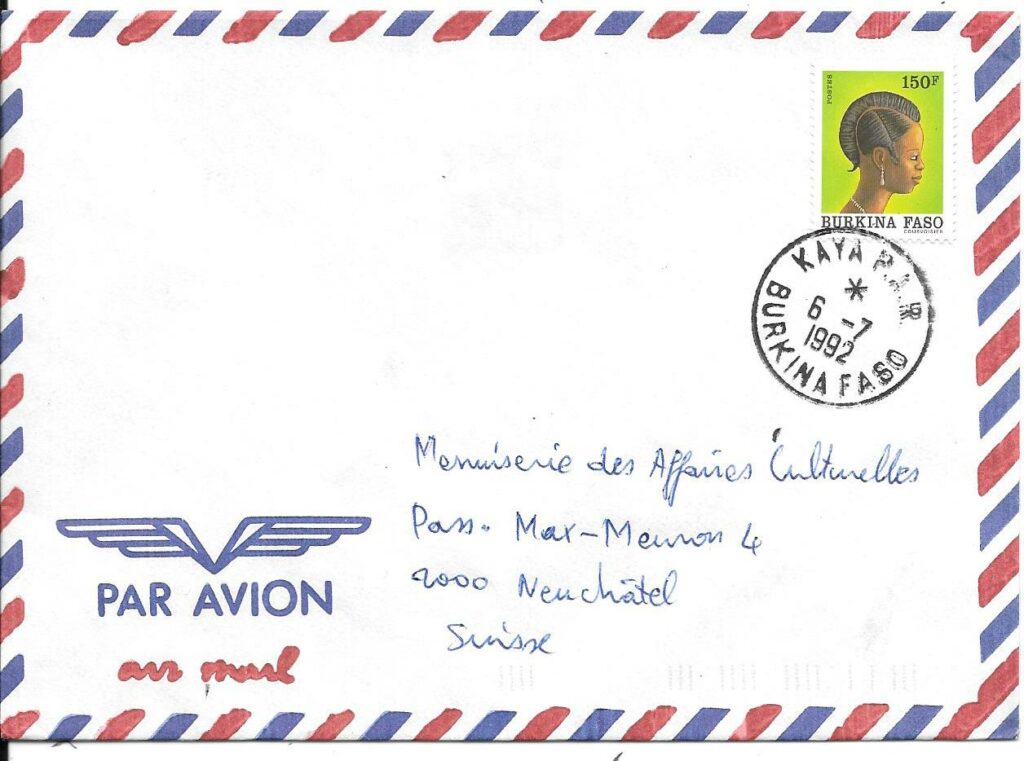 POSTES
150F
BURKINA FASO
KAYA R.P.
6 -7
1992
BURKINA FASO
Menuiserie des Affaires Culturelles
Pass. Max-Meuron 4
2000 Neuchâtel
Suisse
PAR AVION
air mail